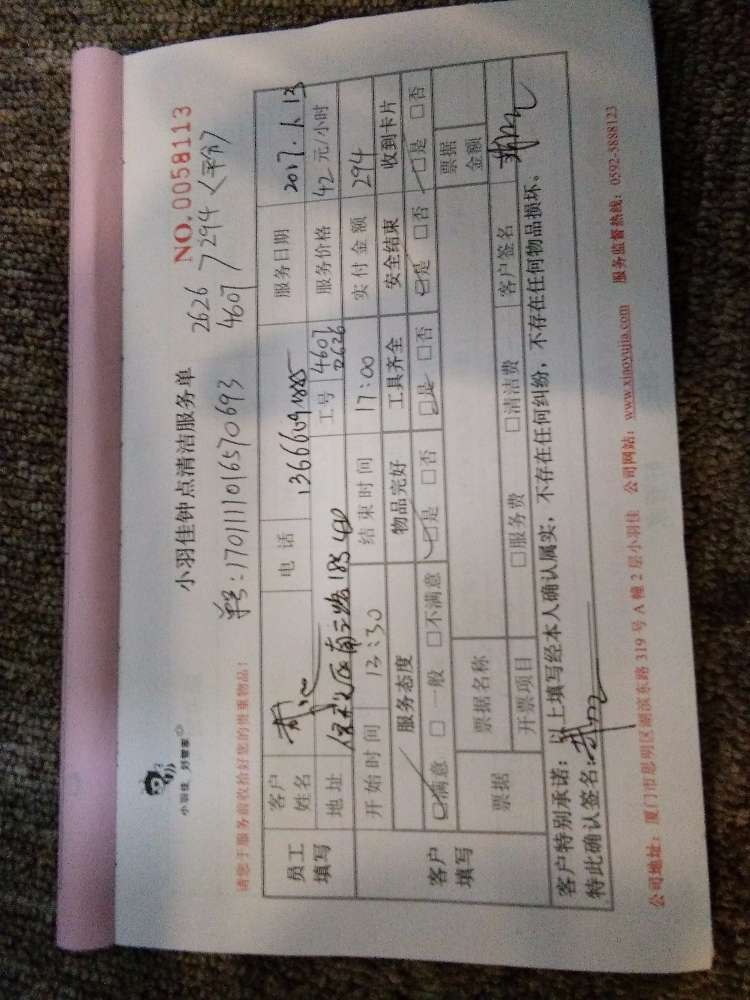 小羽佳 好管家
小羽佳钟点清洁服务单
NO. 0058113
请您于服务前收拾好您的贵重物品!
单号:170111016570693
2626
4607 > 294 <平台>
员工填写
客户姓名
电话 服务日期 2017.1.13
地址 工号 4607 2626 服务价格 42 元/小时
开始时间 13:30 结束时间 17:00 实付金额 294
客户填写
服务态度 物品完好 工具齐全 安全结束 收到卡片
☑满意 □一般 □不满意 ☑是 □否 ☑是 □否 ☑是 □否 ☑是 □否
票据 票据名称 票据金额
开票项目 □服务费 □清洁费 客户签名
客户特别承诺:以上填写经本人确认属实,不存在任何纠纷,不存在任何物品损坏。
特此确认签名:
公司地址:厦门市思明区湖滨东路 319 号 A 幢 2 层小羽佳 公司网站:www.xiaoyujia.com 服务监督热线:0592-5888123